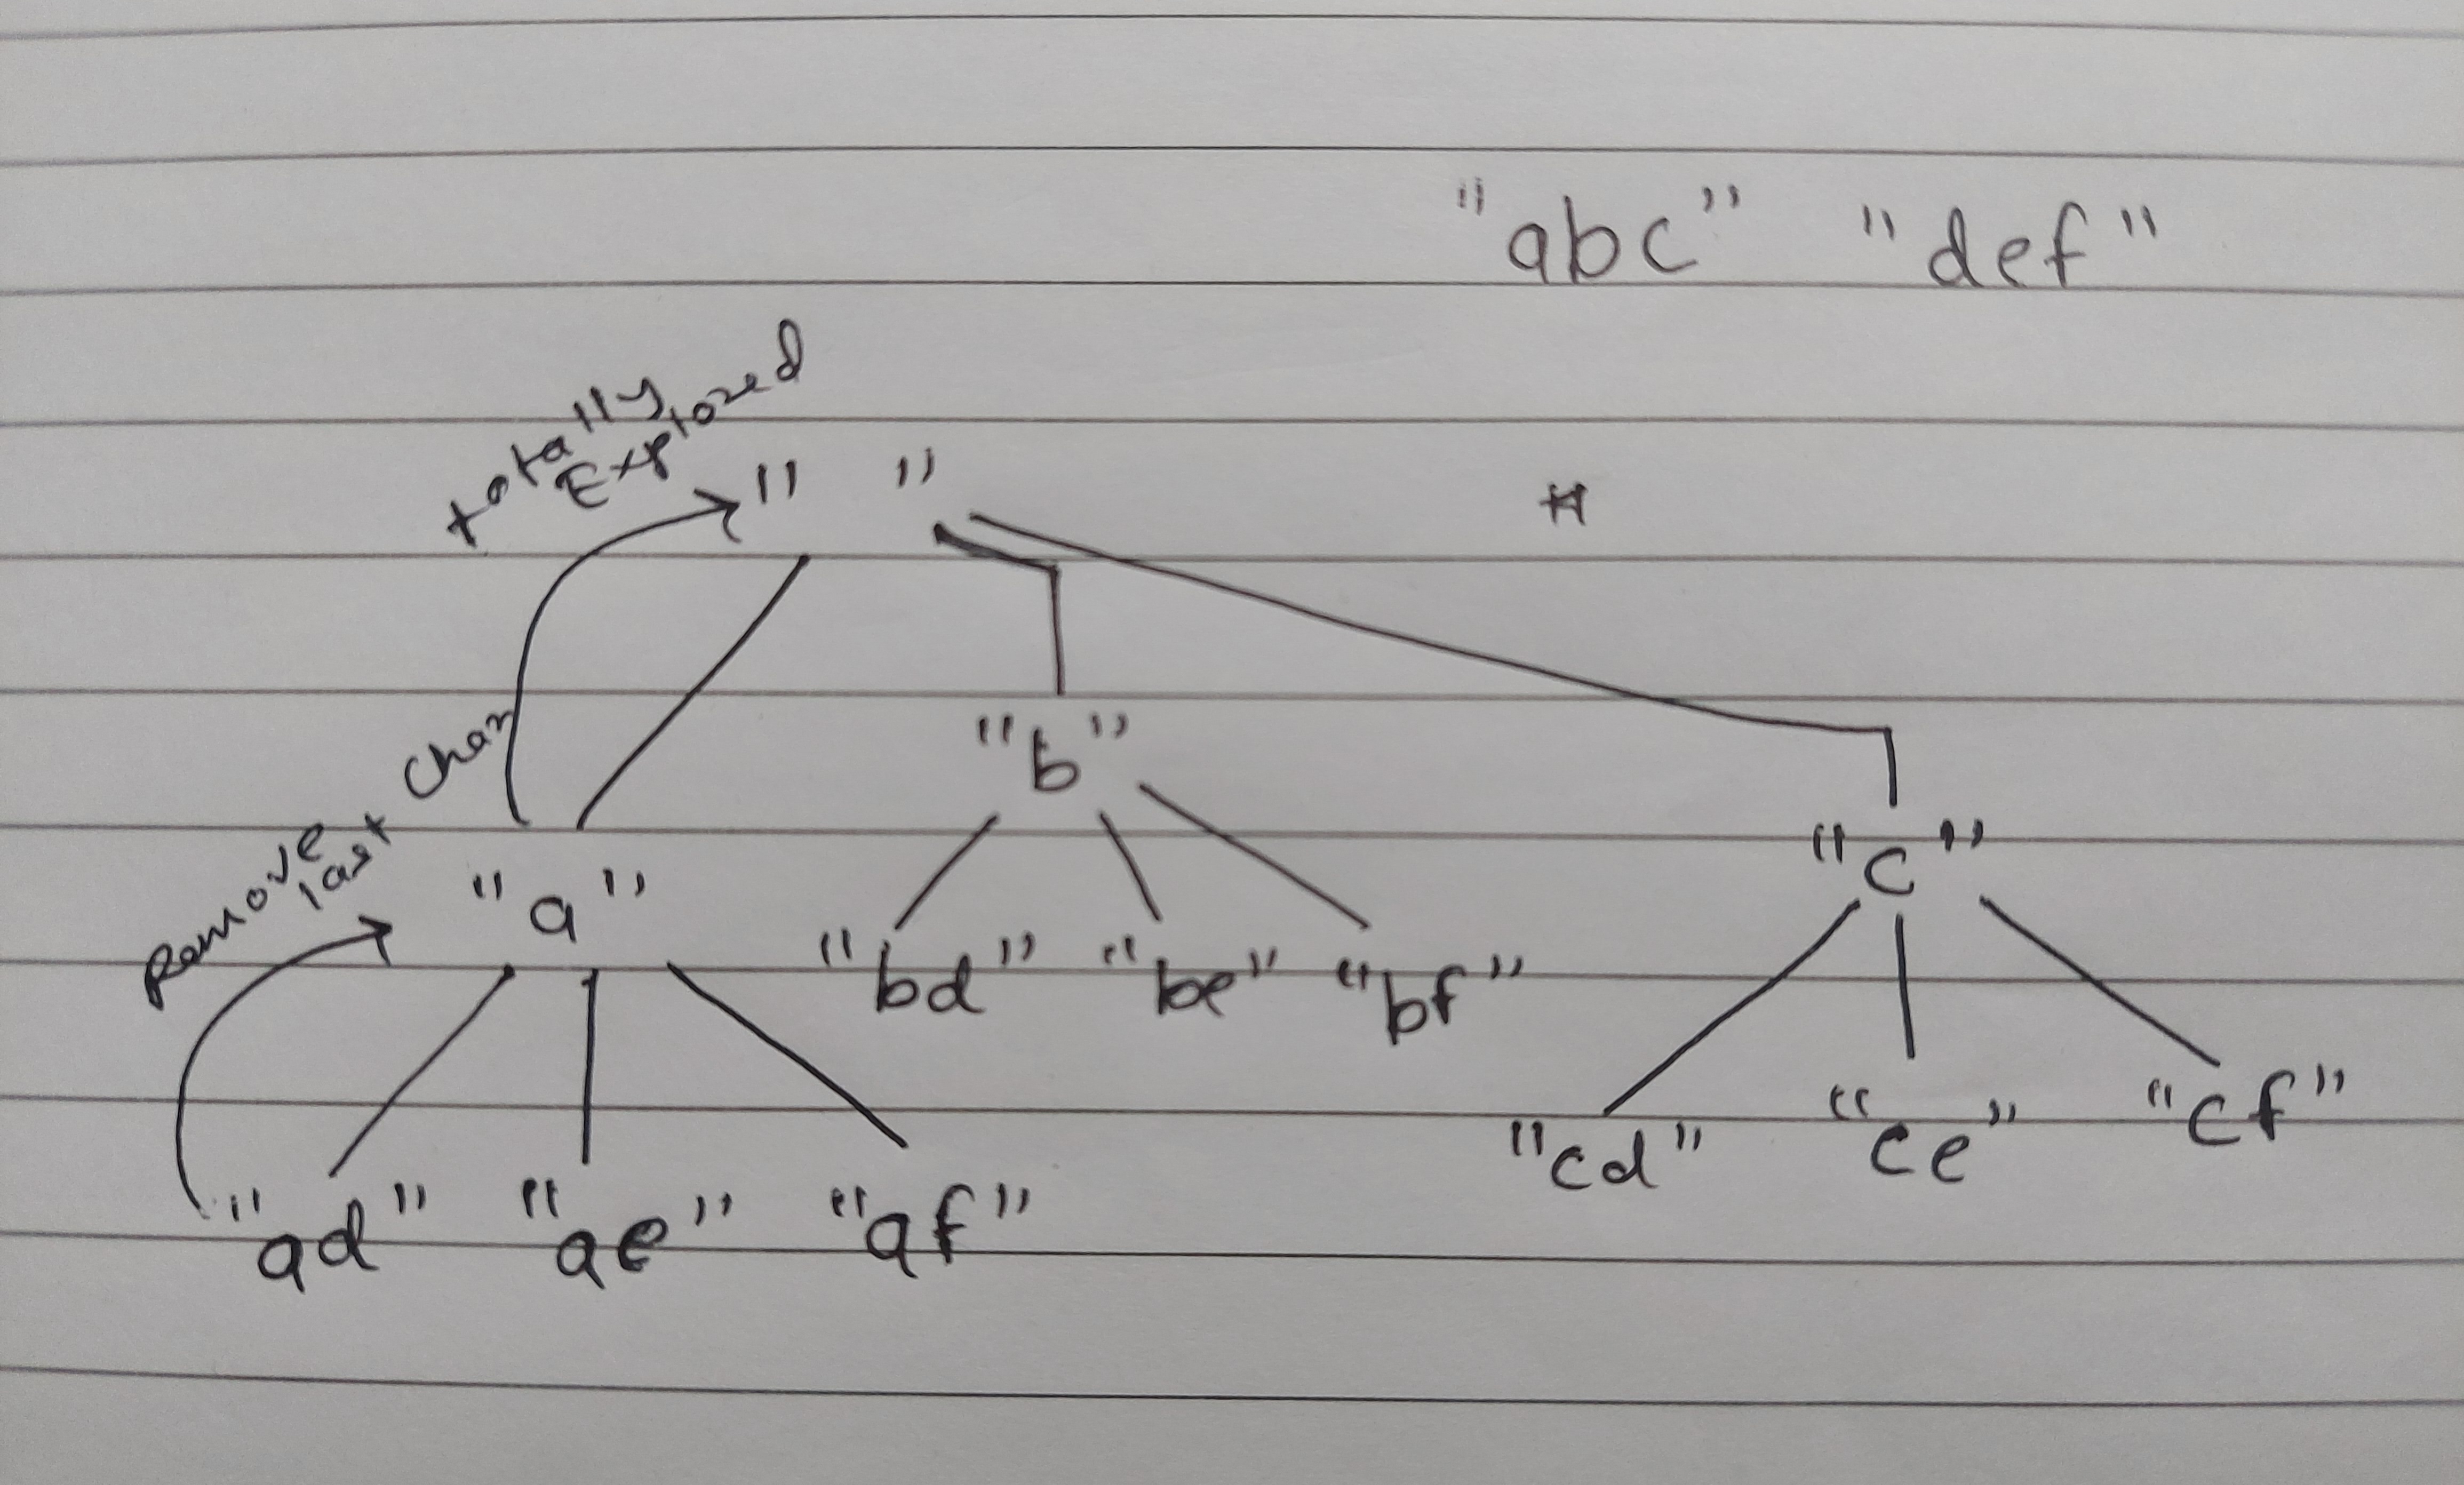 "abc" "def"
totally
Explored
" "
Remove
last char
"b"
"c"
"a"
"bd" "be" "bf"
"cd" "ce" "cf"
"ad" "ae" "af"